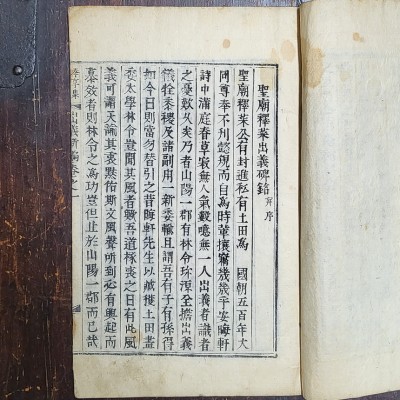 聖廟釋菜出義碑銘 并序
聖廟釋菜公有封進私有土田爲 國朝五百年大
同尊奉不刋懿規而自爲時輩攘竊幾幾乎安晦軒
詩中滿庭春草寂無人氣噫無一人出義者識者
之憂歎久矣乃者山陽一郡有林令 全擔出義
儀牲黍稷及諸副用一新委輸且謂吾有子有孫得
如今日則當勿替引之昔睡軒先生以 土田盡
委太學林令豈聞其風者歟吾道 喪之日有此風
義可謂天諭其衷默佑斯文風聲所到必有興起而
慕效者則林令之爲功豈但止於山陽一郡而已哉
出義 編卷之一